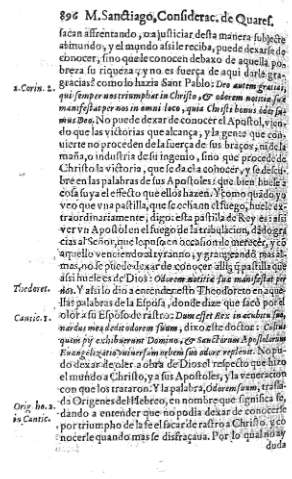 896 M. Sanctiago, Considerac. de Quares.
sacan affrentando, o ajusticiar desta manera subjecte
al mundo, y el mundo assi le reciba, puede dexarse de
conocer, sino que le conocen debaxo de aquella po-
breza su riqueza? y no es fuerça de aqui darle gra-
gracias? como lo hazia Sant Pablo: Deo autem gratias,
2. Corin. 2. qui semper nos triumphat in Christo, & odorem notitiæ suæ
manifestat per nos in omni loco, quia Christi bonus odor su-
mus Deo. No puede dexar de conocer el Apostol, vien-
do que las victorias que alcança, y la gente que con-
uierte no proceden de la fuerça de sus braços, ni de la
maña, o industria de su ingenio, sino que procede de
Christo la victoria, que se da el a conocer, y se descu-
bre en las palabras de sus Apostoles: que bien huele a
cosa suya el effecto que ellos hazen. Y como quādo yo
veo que vna pastilla, que se echa en el fuego, huele ex-
traordinariamente, digo: esta pastilla de Rey es: assi
ver vn Apostol en el fuego de la tribulacion, dādo gra-
cias al Señor, que lo puso en occasion de merecer, y cō
aquello venciendo al tyranno, y grangeando mas al-
mas, no se puede dexar de conocer alli: q̄ pastilla que
assi huele es de Dios: Odorem notitiæ suæ manifestat per
Theodoret. nos. Y assi lo dio a entender esto Theodoreto en aque-
llas palabras de la Esposa, donde dize que sacó por el
Cantic. 1. olor a su Esposo de rastro: Dum esset Rex in accubitu suo,
nardus mea dedit odorem suum, dixo este doctor: Costus
quem pij exhibuerunt Domino, & Sanctorum Apostolorum
Euangelizatio vniuersum orbem suo odore repleuit. No pu-
do dexar de oler a obra de Dios el respeto que hizo
el mundo a Christo, y a sus Apostoles, y la veneracion
con que los trataron. Y la palabra, Odorem suum, trasla-
Orig. ho. 2. da Origenes del Hebreo, en nombre que significa se,
in Cantic. dando a entender que no podia dexar de conocerse
por triumpho de la fe el sacar de rastro a Christo, y co
nocerle quando mas se disfraçaua. Por lo qual no ay
duda